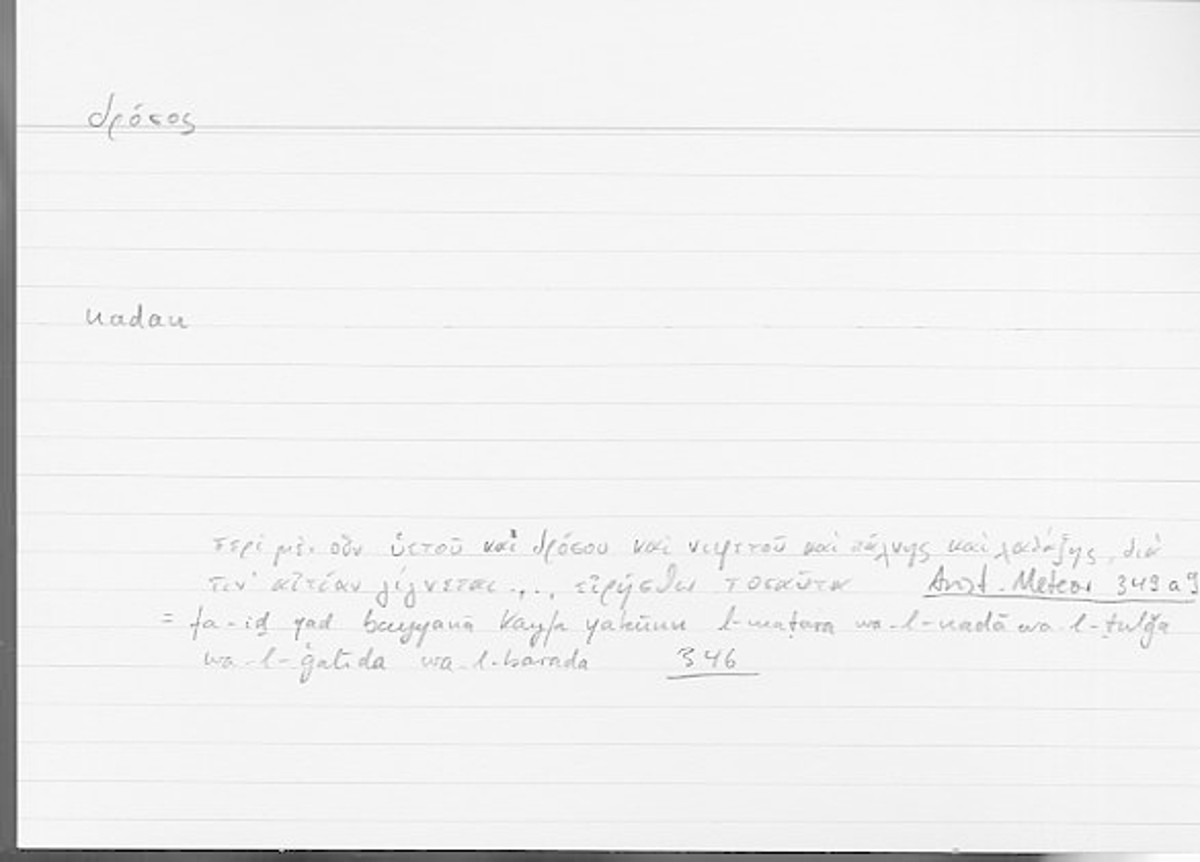 δρόσος
nadan
περὶ μὲν οὖν ὑετοῦ καὶ δρόσου καὶ νιφετοῦ καὶ πάχνης καὶ χαλάζης, διὰ
τίν' αἰτίαν γίγνεται ..., εἰρήσθω τοσαῦτα Arist. Meteor 349a9
= fa-iḏ qad bayyanā kayfa yakūnu l-maṭara wa-l-nadā wa-l-ṯulǧa
wa-l-ǧalīda wa-l-barada 346